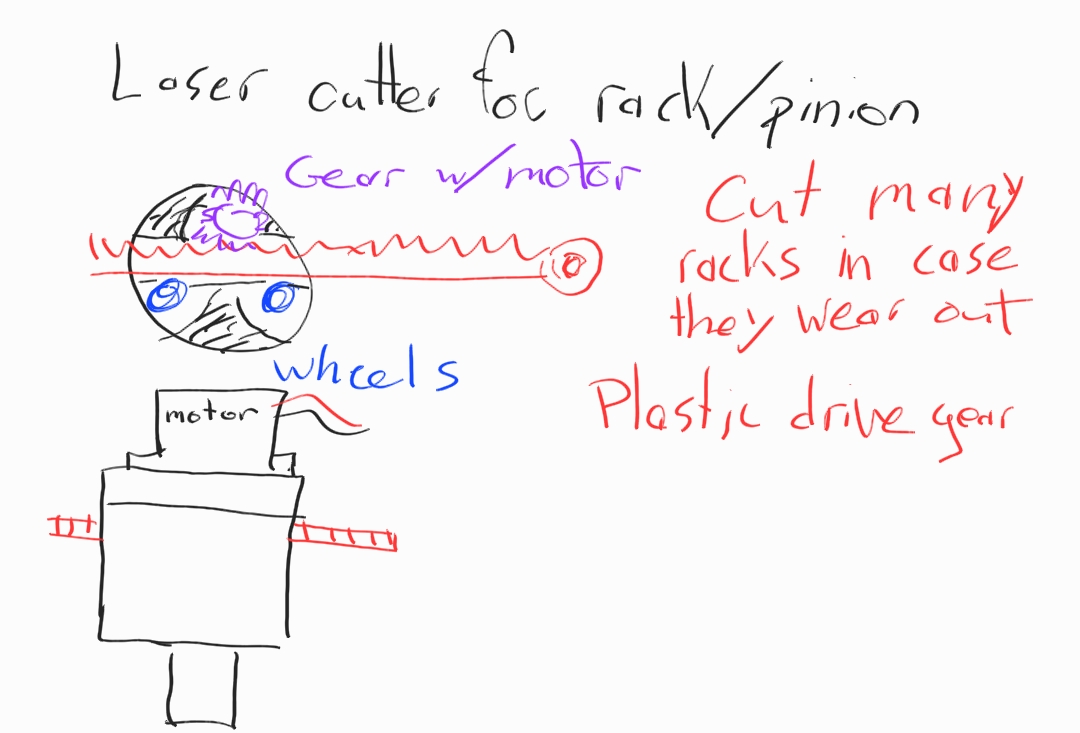 Laser cutter for rack/pinion
Gear w/motor
Cut many
racks in case
they wear out
wheels
Plastic drive gear
motor